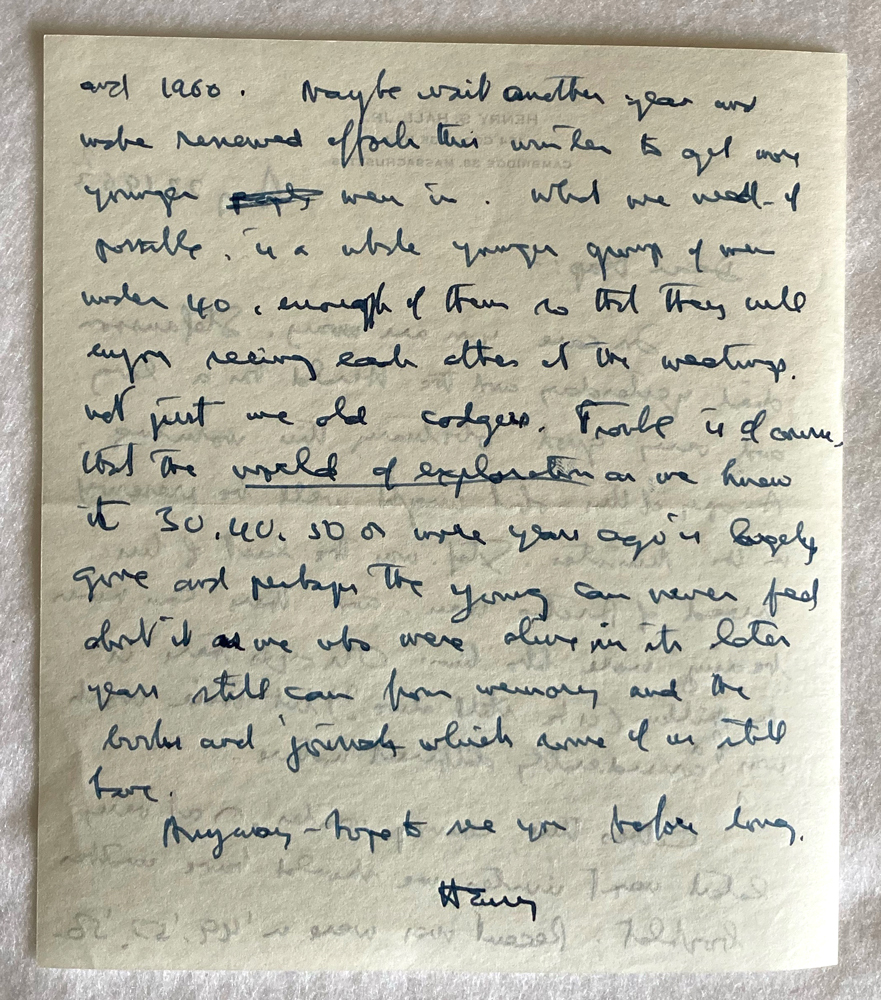 and 1960. Maybe wait another year and
make renewed efforts this winter to get more
younger men in. What we need - if
possible, is a whole younger group of men
under 40, enough of them so that they will
enjoy seeing each other at the meetings.
not just we old codgers. Trouble is of course,
that the world of exploration as we knew
it 30, 40, 50 or more years ago is largely
gone and perhaps the young can never feel
about it as we who were alive in its later
years still can from memory and the
books and journals which some of us still
have.
Anyway - hope to see you before long.
Harry